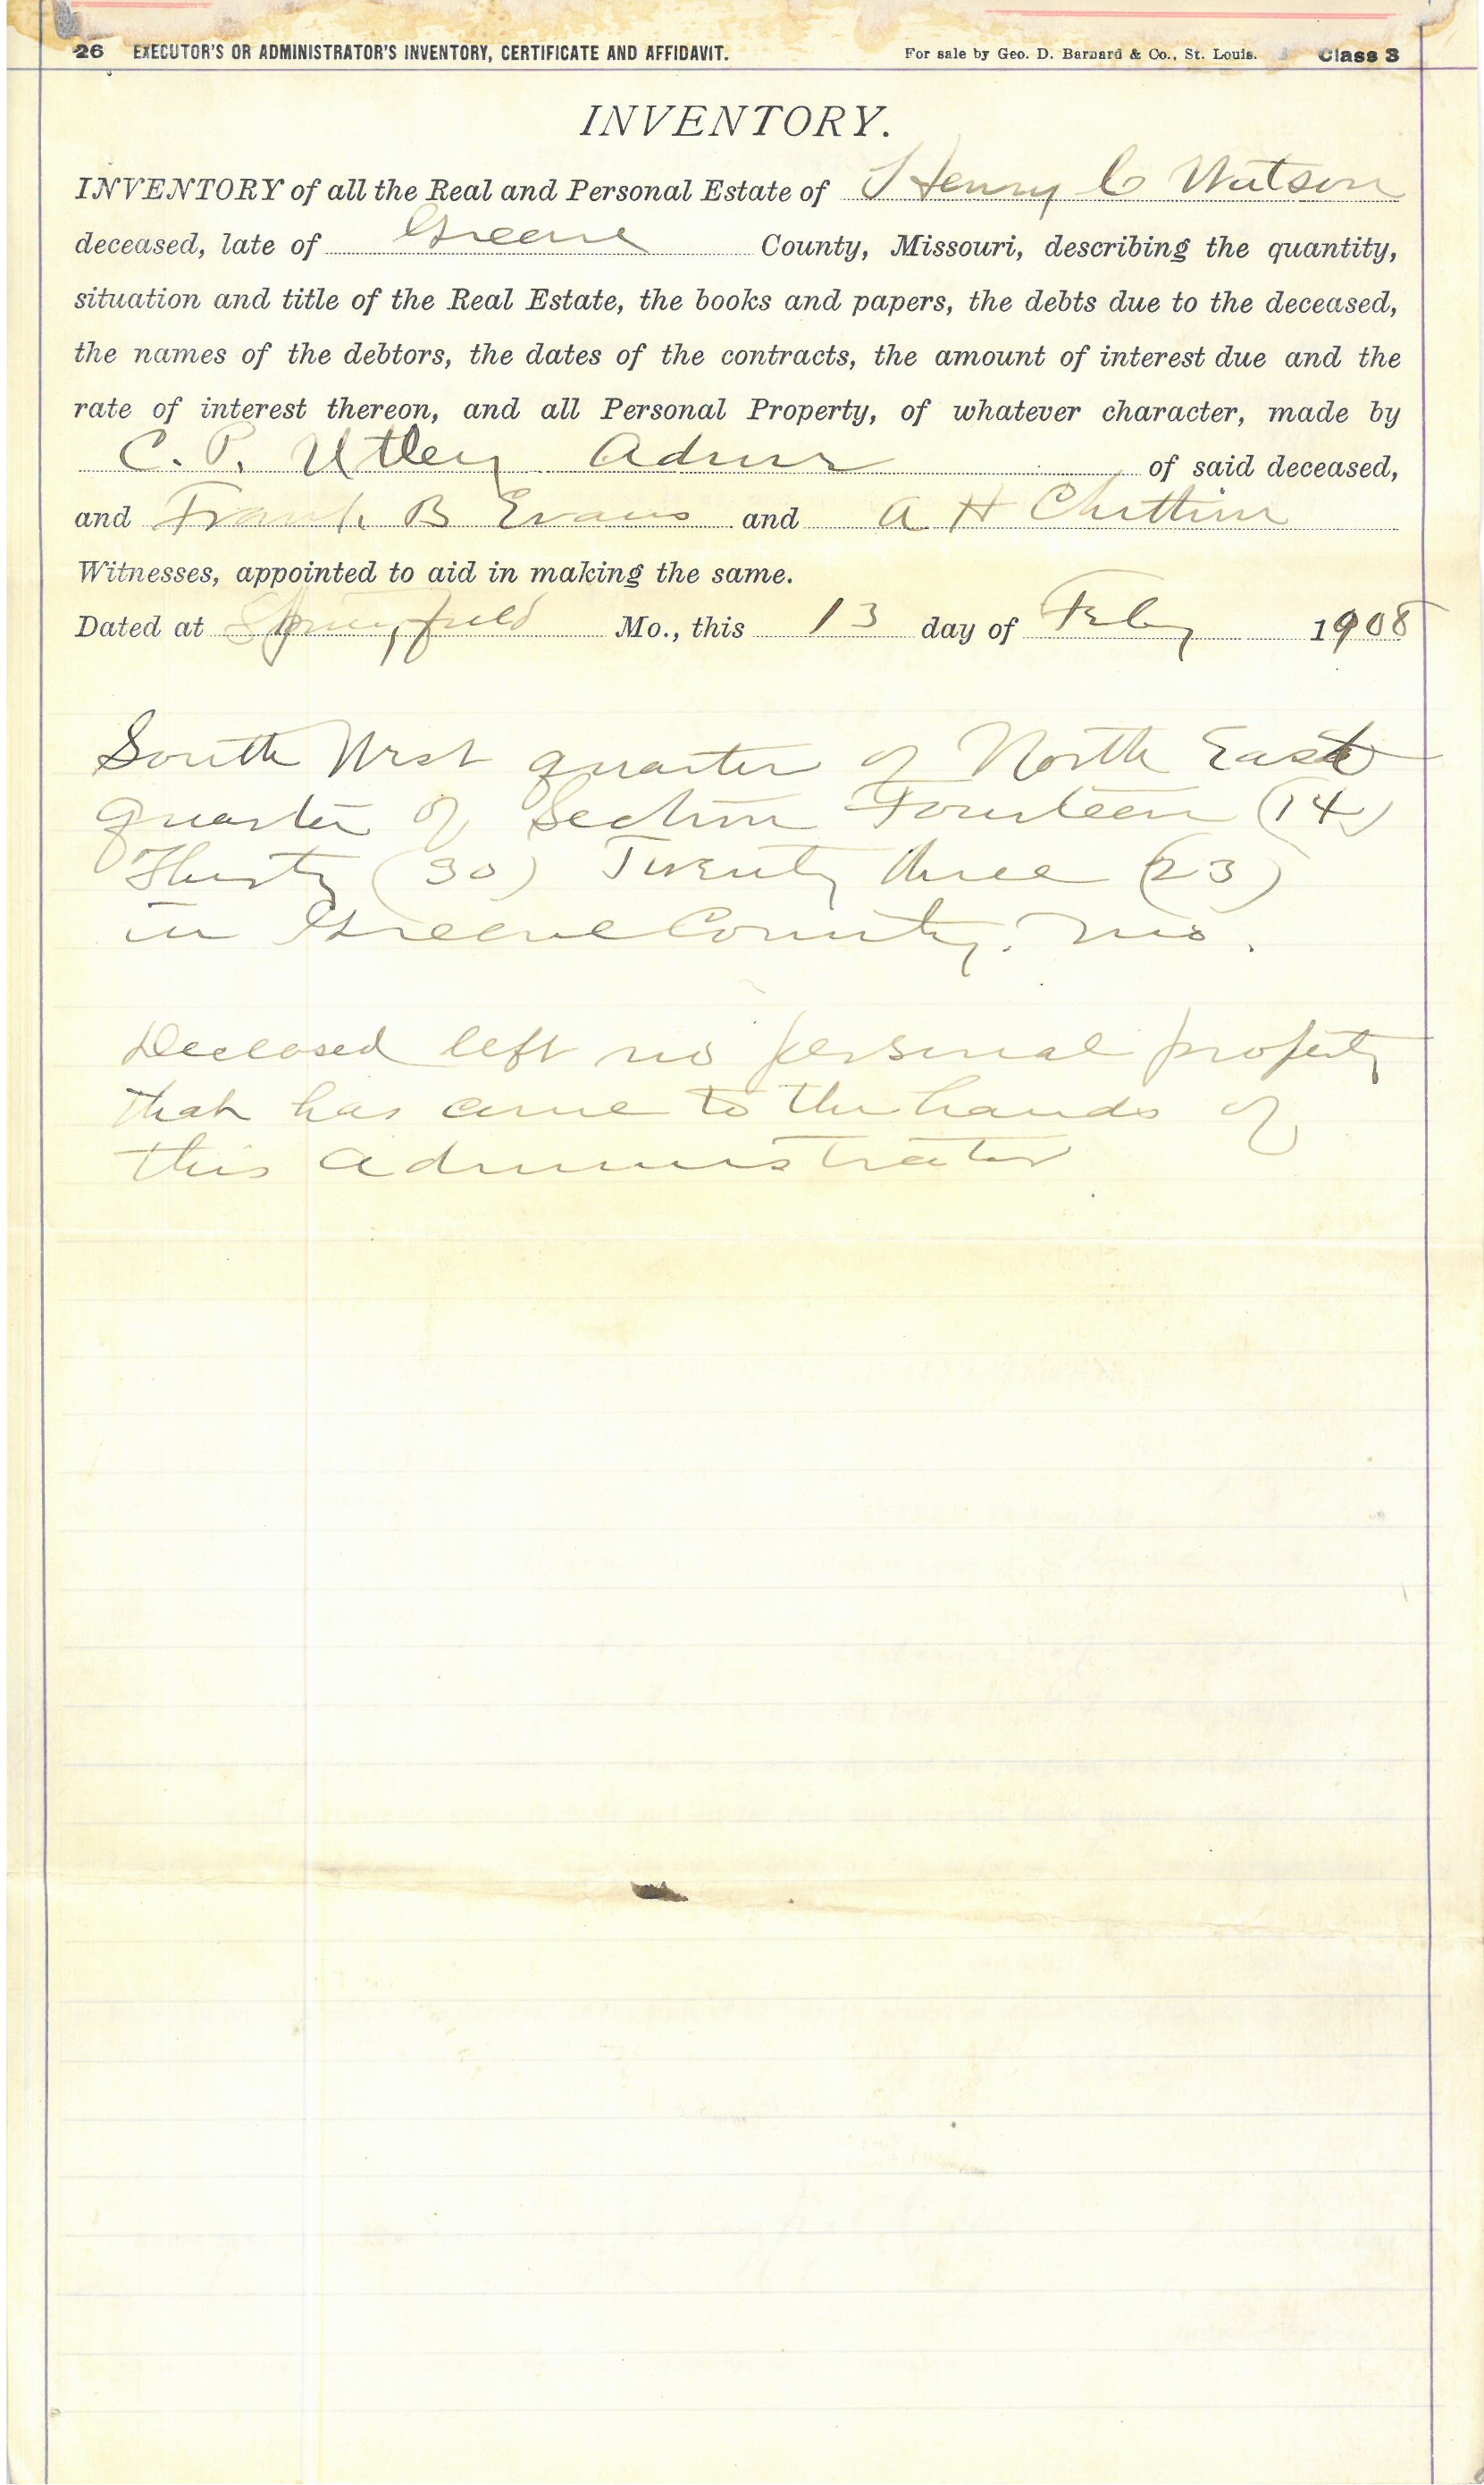 26 EXECUTOR'S OR ADMINISTRATOR'S INVENTORY, CERTIFICATE AND AFFIDAVIT. For sale by Geo. D. Barnard & Co., St. Louis. Class 3
INVENTORY.
INVENTORY of all the Real and Personal Estate of Henry C Watson
deceased, late of Greene County, Missouri, describing the quantity,
situation and title of the Real Estate, the books and papers, the debts due to the deceased,
the names of the debtors, the dates of the contracts, the amount of interest due and the
rate of interest thereon, and all Personal Property, of whatever character, made by
C. P. Utley Admr of said deceased,
and Frank B Evans and A H
Witnesses, appointed to aid in making the same.
Dated at Springfield Mo., this 13 day of Feby 1908
South West quarter of North East
quarter of Section Fourteen (14)
Thirty (30) Twenty three (23)
in Greene County. Mo.
Deceased left no personal property
that has come to the hands of
this administrator